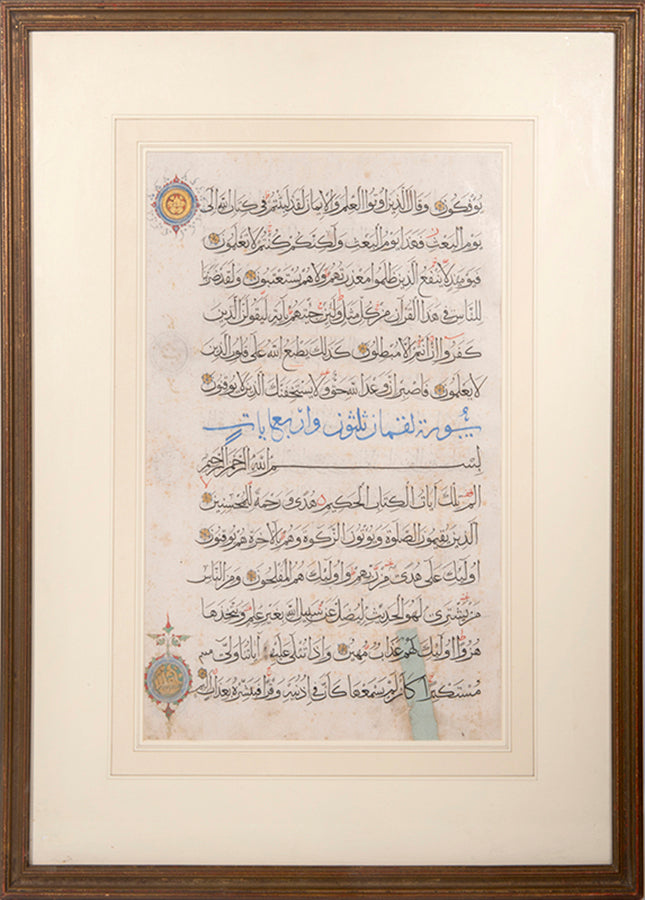 يؤفكون وقال الذين اوتوا العلم والايمان لقد لبثتم في كتاب الله الى
يوم البعث فهذا يوم البعث ولكنكم كنتم لا تعلمون
فيومئذ لا تنفع الذين ظلموا معذرتهم ولا هم يستعتبون ولقد ضربنا
للناس في هذا القرآن من كل مثل ولئن جئتهم باية ليقولن الذين
كفروا ان انتم الا مبطلون كذلك يطبع الله على قلوب الذين
لا يعلمون فاصبر ان وعد الله حق ولا يستخفنك الذين لا يوقنون
سورة لقمان ثلثون واربع ايات
بسم الله الرحمن الرحيم
الم تلك ايات الكتاب الحكيم هدى ورحمة للمحسنين
الذين يقيمون الصلوة ويؤتون الزكوة وهم بالاخرة هم يوقنون
اولئك على هدى من ربهم واولئك هم المفلحون ومن الناس
من يشتري لهو الحديث ليضل عن سبيل الله بغير علم ويتخذها
هزوا اولئك لهم عذاب مهين واذا تتلى عليه اياتنا ولى
مستكبرا كان لم يسمعها كان في اذنيه وقرا فبشره بعذاب اليم